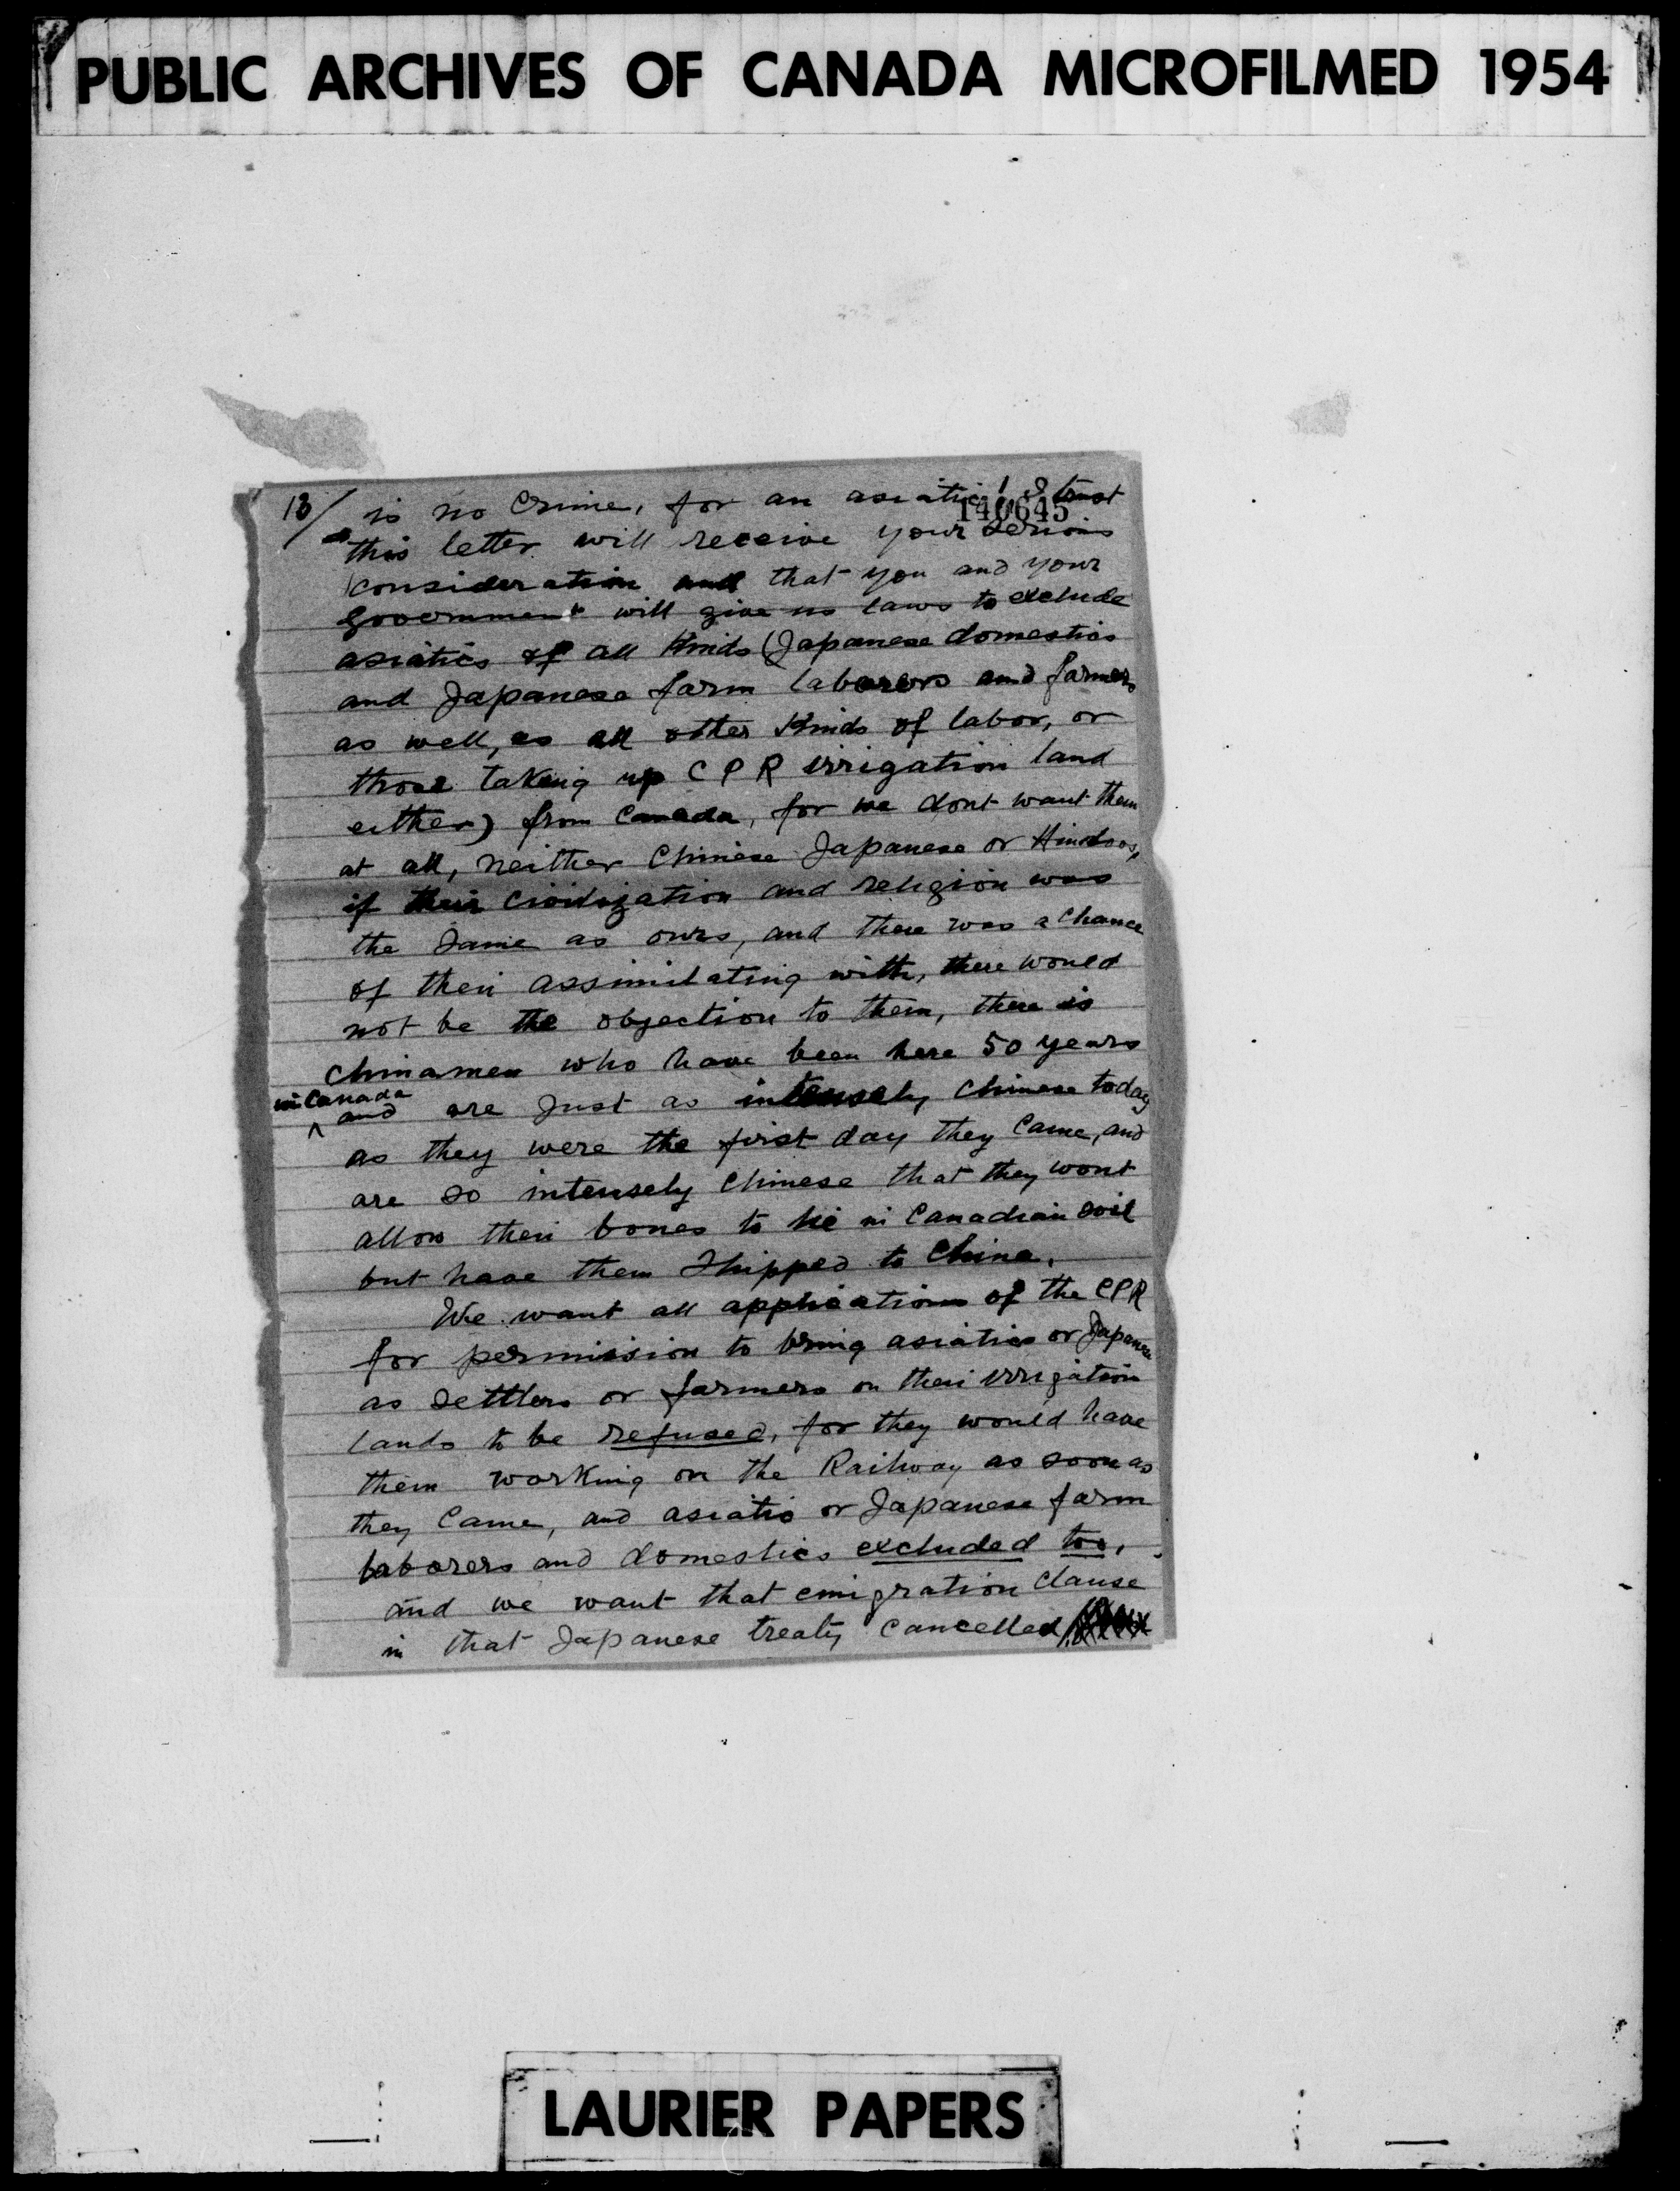 PUBLIC ARCHIVES OF CANADA MICROFILMED 1954
18/ is no Crime, for an asiatic! I trust
140645
this letter will receive your serious
consideration and that you and your
Government will give us laws to exclude
asiatics of all Kinds (Japanese domestics
and Japanese farm laborers and farmers
as well, as all other Kinds of labor, or
those taking up CPR irrigation land
either) from Canada, for we dont want them
at all, neither Chinese Japanese or Hindoos,
if their civilization and religion was
the same as ours, and there was a chance
of their assimilating with, there would
not be the objection to them, there is
Chinamen who have been here 50 years
in Canada
^ and are Just as intensely Chinese today
as they were the first day they Came, and
are so intensely Chinese that they wont
allow their bones to lie in Canadian soil
but have them Shipped to China.
We want all applications of the CPR
for permission to bring asiatics or Japanese
as settlers or farmers on their irrigation
lands to be refused, for they would have
them working on the Railway as soon as
they Came, and asiatic or Japanese farm
laborers and domestics excluded too,
and we want that emigration clause
in that Japanese treaty cancelled
LAURIER PAPERS